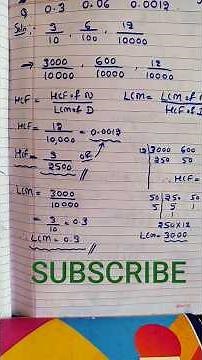 Q 0.3 0.06 0.0012
Soln: 3/10, 6/100, 12/10000
→ 3000/10000, 600/10000, 12/10000
HCF = HCF of N/LCM of D LCM = LCM of N/HCF of D
HCF = 12/10,000 = 0.0012
HCF = 3/2500 or
12 3000 600
250 50
∴ HCF =
LCM = 3000/10000
50 250 50
5 5 1
1
= 3/10 = 0.3
250×12
LCM = 3000
∴ LCM = 0.3
SUBSCRIBE